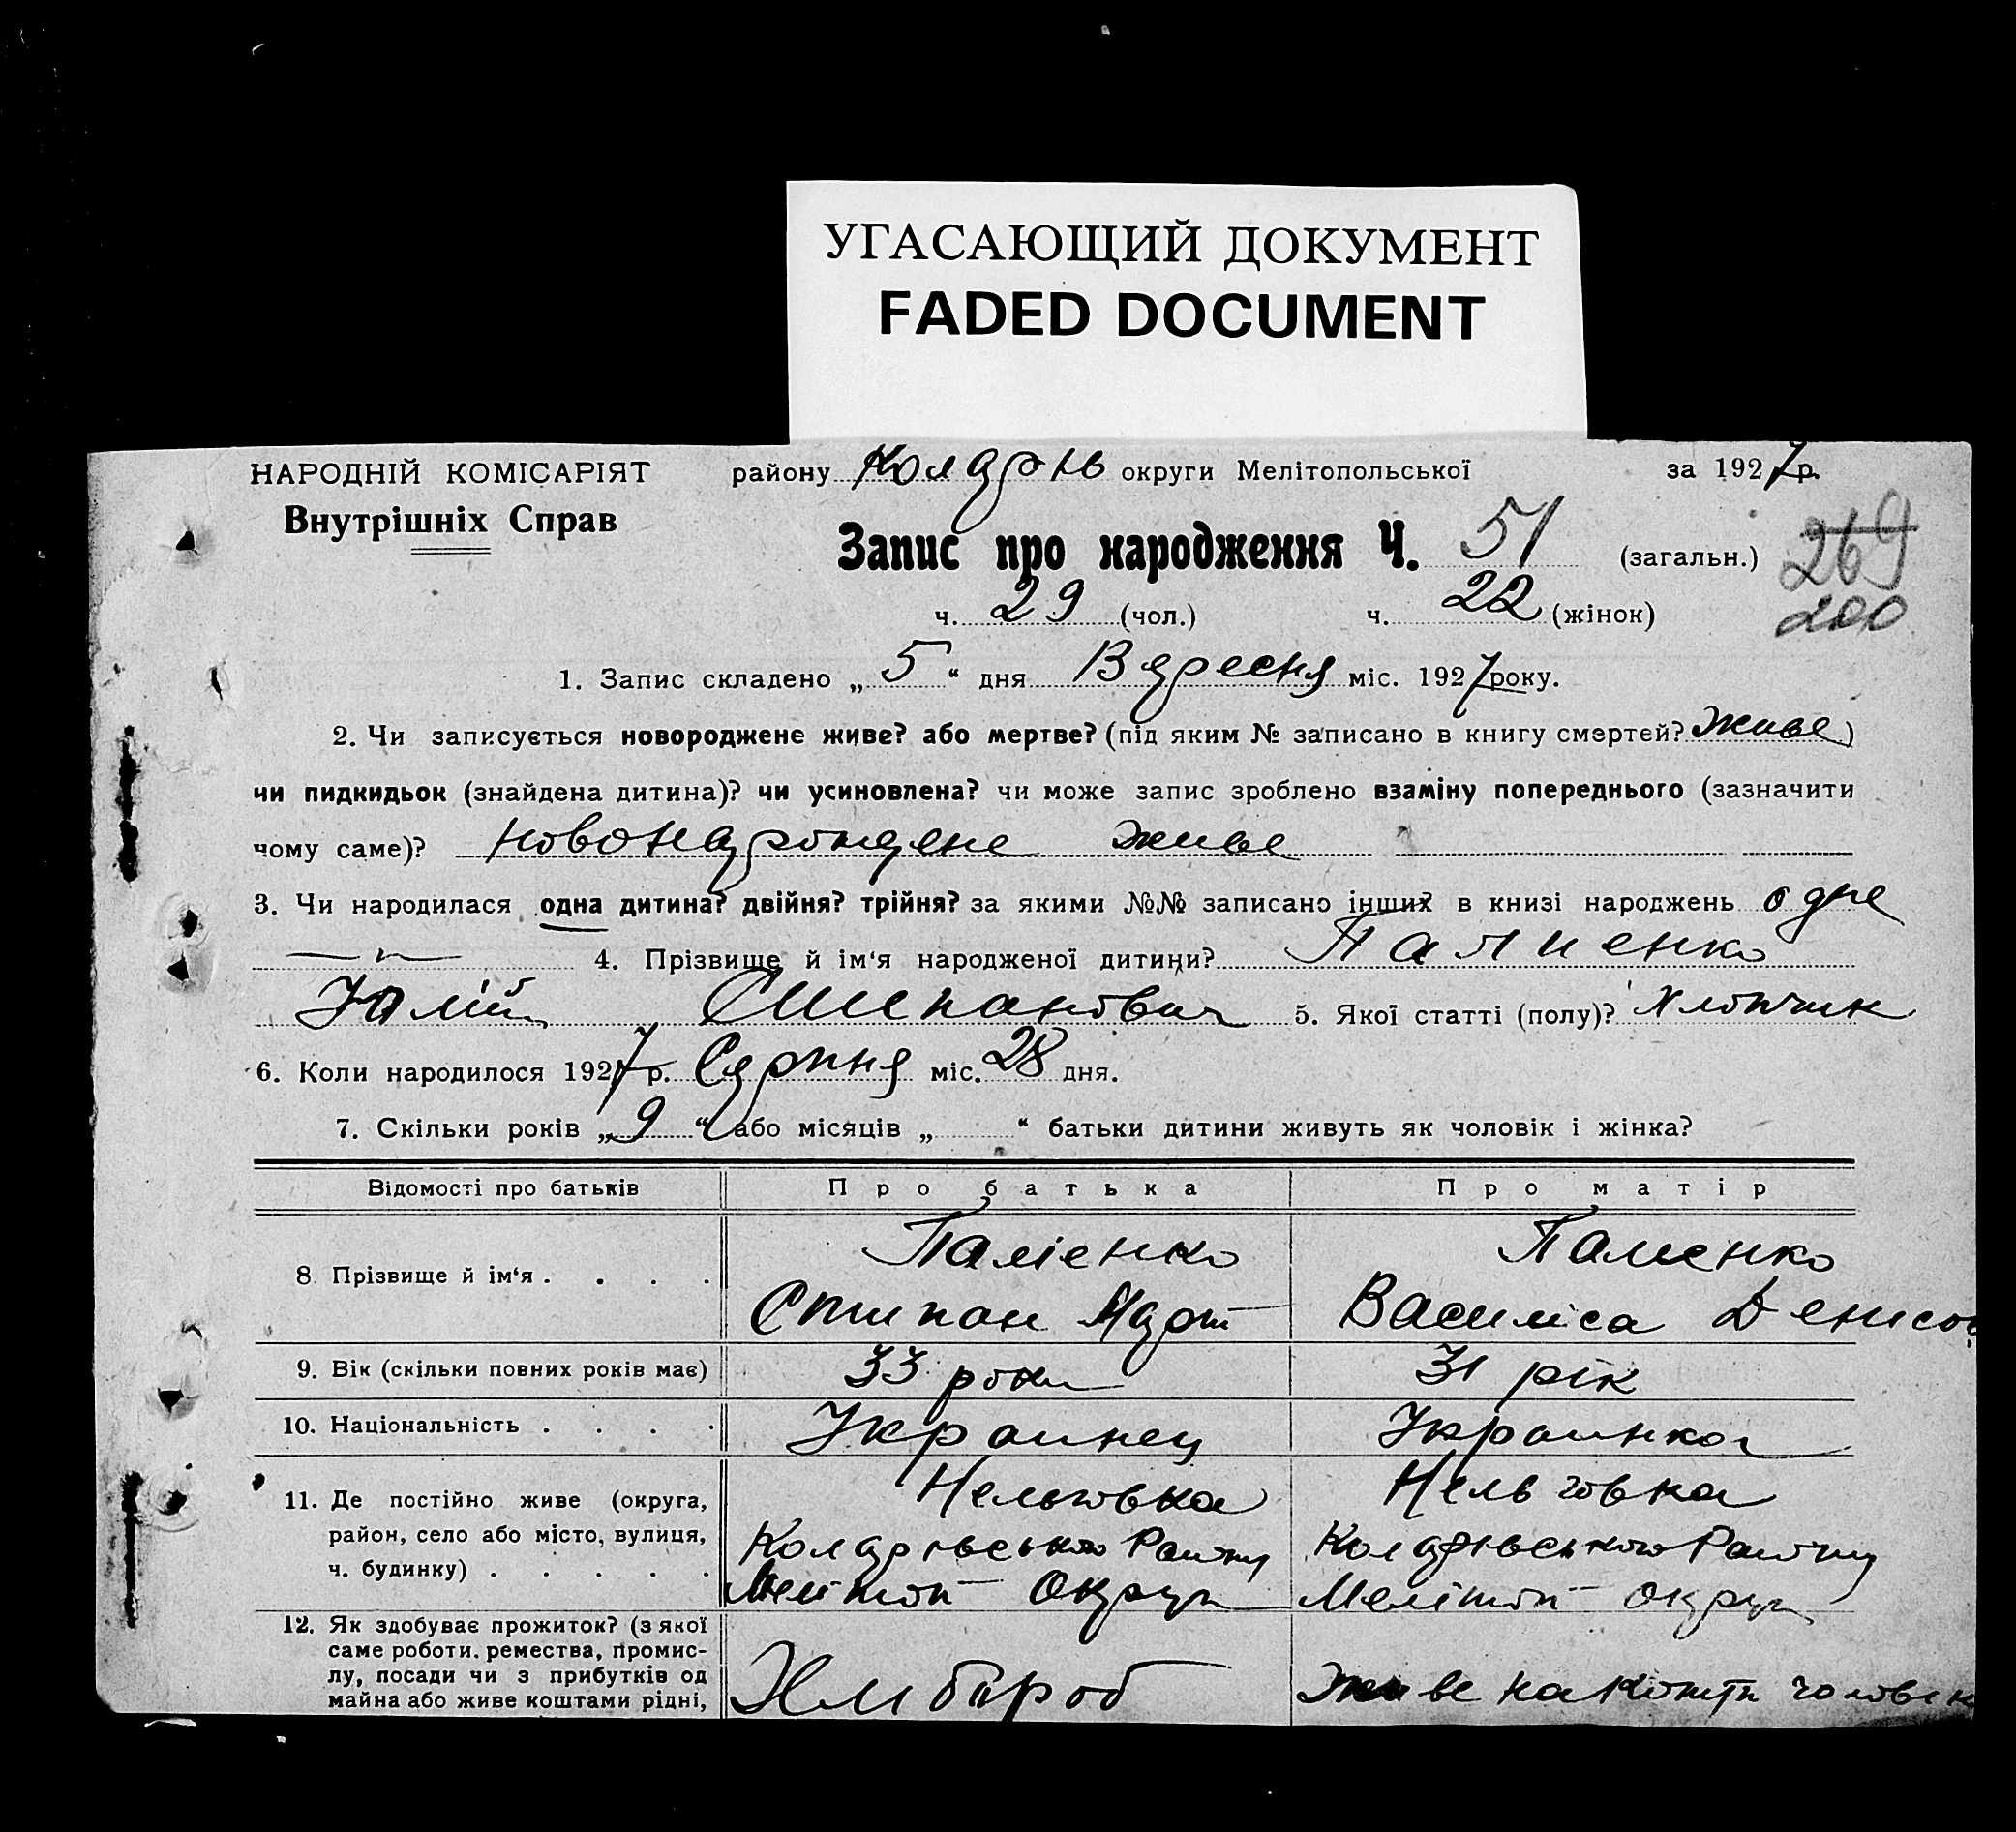 УГАСАЮЩИЙ ДОКУМЕНТ
FADED DOCUMENT
НАРОДНІЙ КОМІСАРІЯТ району округи Мелітопольської за 1927 р.
Внутрішніх Справ
Запис про народження Ч. 51 (загальн.) 269
ч. 29 (чол.) ч. 22 (жінок) 200
1. Запис складено „5“ дня Вересня міс. 1927 року.
2. Чи записується новороджене живе? або мертве? (під яким № записано в книгу смертей? живе)
чи пидкидьок (знайдена дитина)? чи усиновлена? чи може запис зроблено взаміну попереднього (зазначити
чому саме)? живе
3. Чи народилася одна дитина? двійня? трійня? за якими №№ записано інших в книзі народжень одне
4. Прізвище й ім‘я народженої дитини? Палиенко
Юлій Степанович 5. Якої статті (полу)? Хлопчик
6. Коли народилося 1927 р. Серпня міс. 28 дня.
7. Скільки років „9“ або місяців „ “ батьки дитини живуть як чоловік і жінка?
Відомості про батьків Про батька Про матір
Паліенко Палиенко
8 Прізвище й ім‘я . . . . Степан Василіса Денисов
9. Вік (скільки повних років має) 33 роки 31 рік
10. Національність . . . . Украинец Украинка
11. Де постійно живе (округа,
район, село або місто, вулиця, Району Району
ч. будинку) . . . . . Мелітоп Округи Мелітоп округи
12. Як здобуває прожиток? (з якої
саме роботи, ремества, промис-
лу, посади чи з прибутків од
майна або живе коштами рідні, Хлибороб Живе на кошти чоловіка